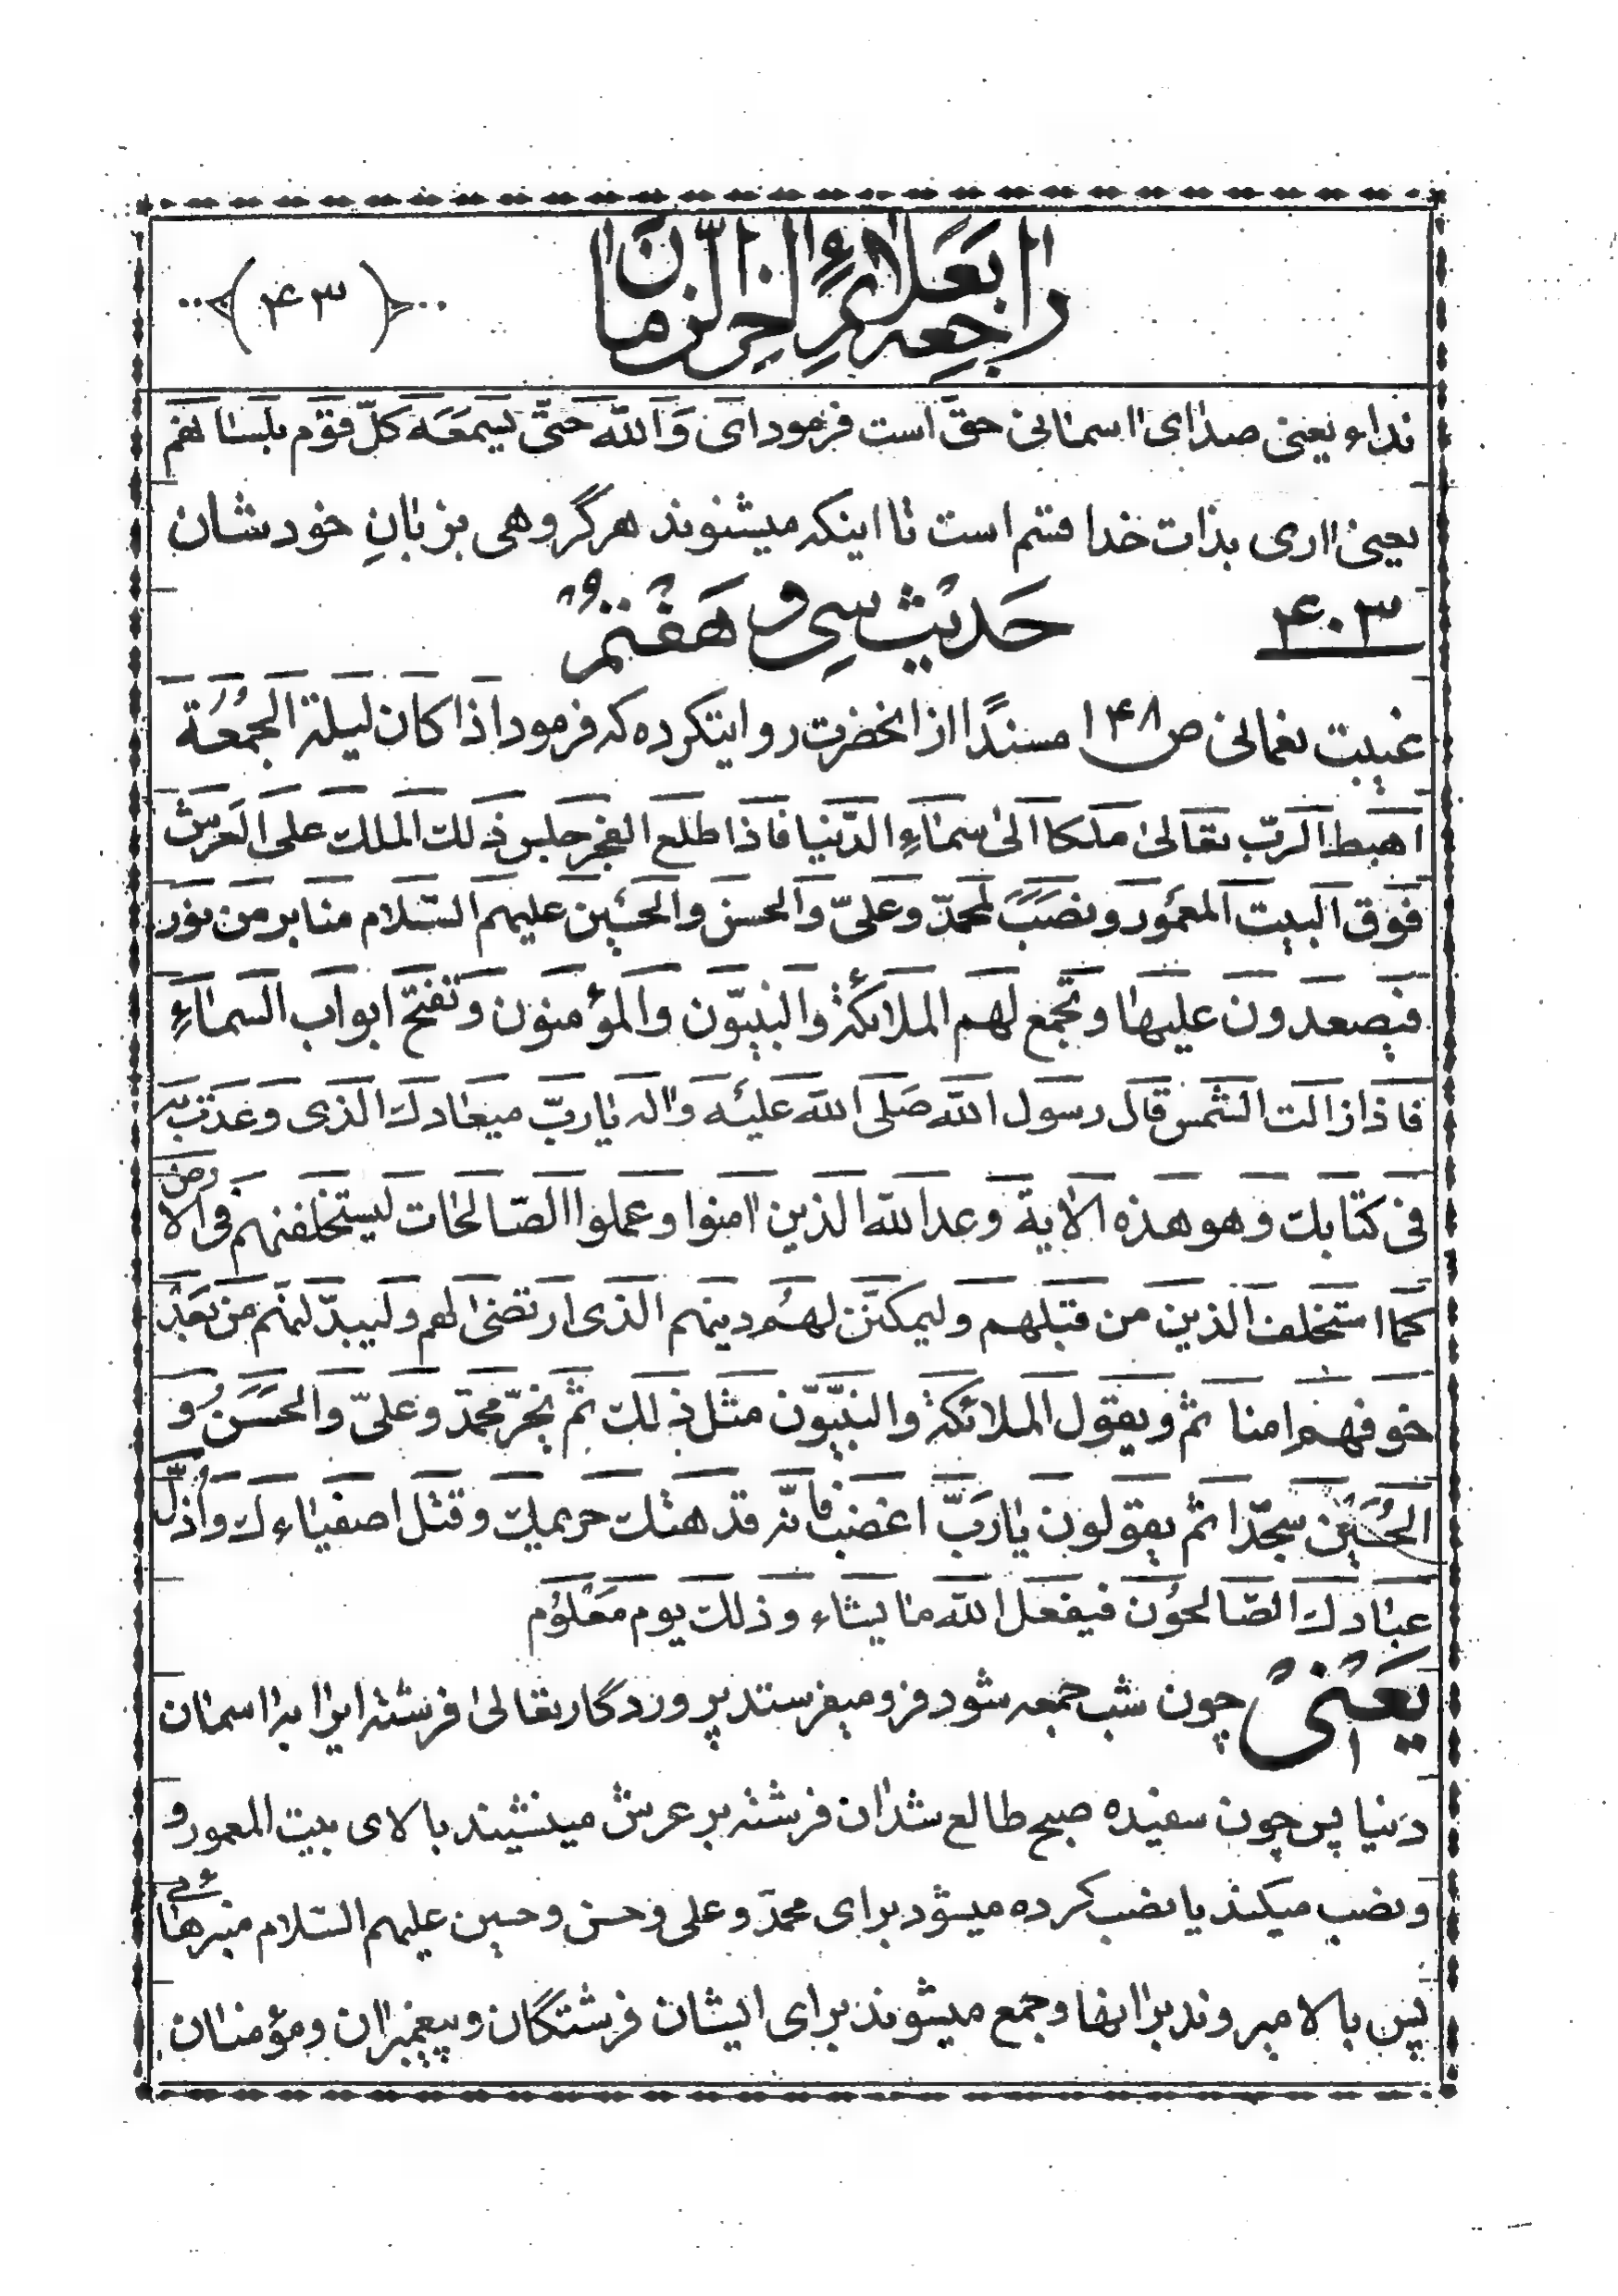 راجعه بعلائم اخر الزمان
(۴۳)
نداء یعنی صدای اسمانی حقّ است فرمود ای وَاللّه حَتّی یَسمَعَه کلّ قَوم بلسانهم
یعنی اری بذات خدا قسم است تا اینکه میشنوند هر گروهی بزبانِ خودشان
۴۰۳
حَدیث سِی و هَفتم
غیبت نعمانی ص ۱۴۸ مسندًا از انحضرت روایتکرده که فرمود اذا کان لیلة الجُمُعَة
اهبط الرّب تعالی ملکا الی سماءِ الدّنیا فاذا طلع الفجر جلس ذلك الملك علی العرش
فوق البیت المعمور و نصب لمحمدّ و علیّ والحسن والحسَین علیهم السّلام منابر من نور
فیصعدون علیها و تجمع لهم الملائکة والنبیّون والمؤمنون و تفتح ابواب السماءِ
فاذا زالت الشمس قال رسول اللّه صَلی اللّه علیه و اله یا ربّ میعادك الذی وعدت به
فی کتابك و هو هذه الایة وعد اللّه الذین امنوا و عملوا الصّالحات لیستخلفنهم فی الارض
کما استخلف الذین من قبلهم ولیمکننّ لهُم دینهم الذی ارتضی لهم و لیبدّلنهّم من بَعد
خوفهم امنا ثم و یقول الملائکة والنبیّون مثل ذلك ثم یخرّ محمدّ و علیّ والحَسَن و
الحُسَین سجّدا ثم یقولون یا ربّ اغضب فانّه قد هتك حریمك و قتل اصفیاءك و اُذلّ
عبادك الصّالحون فیفعل اللّه ما یشاء و ذلك یوم مَعلوُم
یَعنی چون شب جمعه شود فرو میفرستد پروردگار تعالی فرشتهٔ ایرا براسمان
دنیا پس چون سفیده صبح طالع شد ان فرشته بر عرش مینشیند بالای بیت المعمور و
و نصب میکند یا نصب کرده میشود برای محمدّ و علی و حسن و حسین علیهم السّلام منبرهائی
پس بالا میروند بر انها و جمع میشوند برای ایشان فرشتگان و پیغمبران و مؤمنان